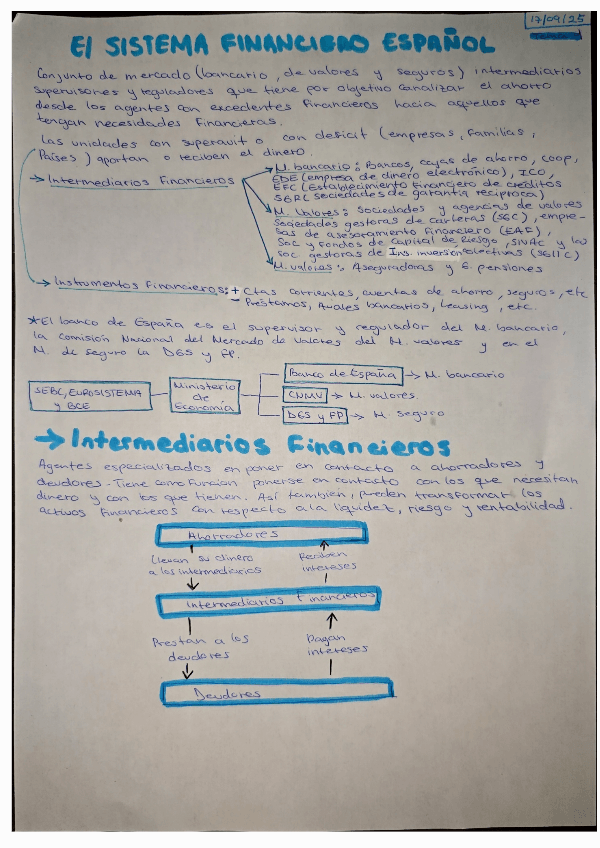 17/09/25
El SISTEMA FINANCIERO ESPAÑOL
Conjunto de mercado (bancario, de valores y seguros) intermediarios
supervisores y reguladores que tiene por objetivo canalizar el ahorro
desde los agentes con excedentes financieros hacia aquellos que
tengan necesidades financieras.
Las unidades con superavit o con deficit (empresas, familias,
Países) aportan o reciben el dinero.
→ Intermediarios Financieros
M. bancario: Bancos, cajas de ahorro, coop,
EDE (empresa de dinero electrónico), ICO,
EFC (Establecimiento Financiero de créditos
SGRC sociedades de garantía recíproca)
M. Valores: Sociedades y agencias de valores
Sociedades gestoras de carteras (SGC), empre-
sas de asesoramiento Financiero (EAF),
Soc y Fondos de Capital de Riesgo, SIVAC y las
soc gestoras de Ins. inversión colectivas (SGIIC)
M. valores: Aseguradoras y E. pensiones
→ Instrumentos Financieros: + Ctas corrientes, cuentas de ahorro, seguros, etc
- Préstamos, Avales bancarios, leasing, etc.
*El banco de España es el supervisor y regulador del M. bancario,
la comisión Nacional del Mercado de Valores del M. valores y en el
M. de seguro la DGS y FP.
SEBC, EUROSISTEMA
y BCE
Ministerio
de
Economía
Banco de España → M. bancario
CNMV → M. valores
DGS y FP → M. seguro
→ Intermediarios Financieros
Agentes especializados en poner en contacto a ahorradores y
deudores. Tiene como función ponerse en contacto con los que necesitan
dinero y con los que tienen. Así también, pueden transformar los
activos financieros con respecto a la liquidez, riesgo y rentabilidad.
Ahorradores
Llevan su dinero
a los intermediarios
Reciben
intereses
Intermediarios Financieros
Prestan a los
deudores
Pagan
intereses
Deudores